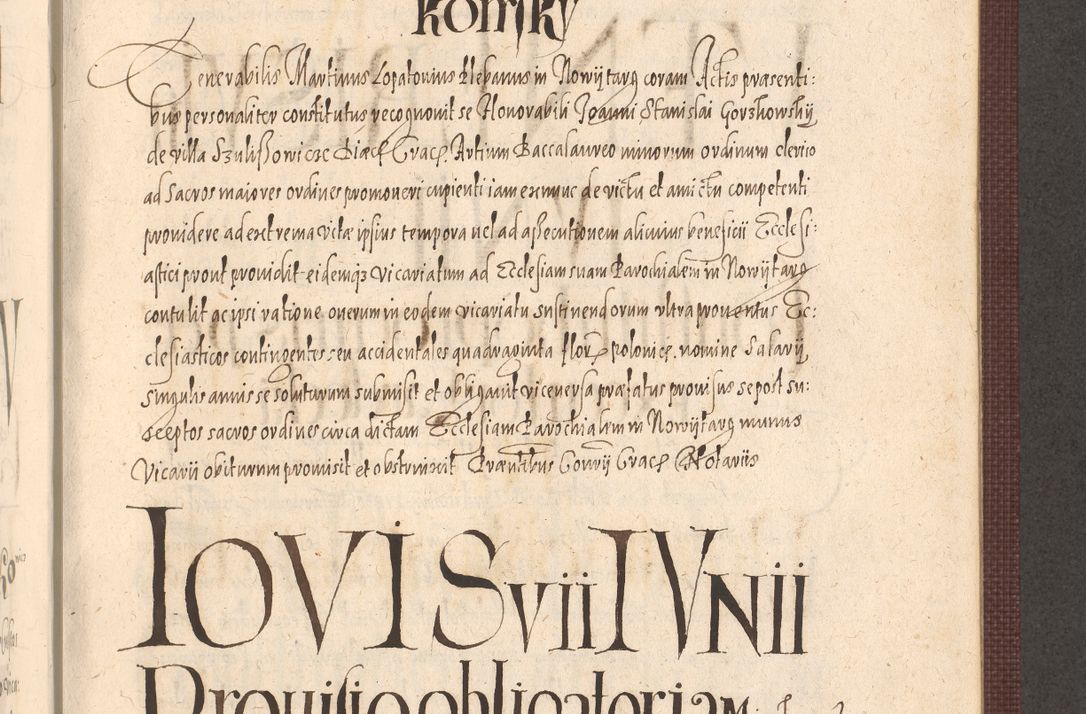 Venerabilis Martinus Lopatovius Plebanus in Nowÿtarg coram Actis præsenti:
bus personaliter constitutus recognovit se Honorabili Joanni Stanislai Gorzkowskÿ
de villa Szulissowicze Diæc. Crac. Artium Baccalaureo minorum ordinum clerico
ad Sacros maiores ordines promoveri cupienti iam ex nunc de victu et amictu competenti
providere ad extrema vitæ ipsius tempora vel ad assecutionem alicuius beneficii Ecclesi:
astici prout providit eidemq3 vicariatum ad Ecclesiam suam Parochialem in Nowÿtarg
contulit ac ipsi ratione onerum in eodem vicariatu sustinendorum ultra proventus Ec:
clesiasticos contingentes seu accidentales quadraginta flor. polonic. nomine Salarÿ
singulis annis se soluturum submisit et obligavit vice versa præfatus provisus se post su:
sceptos sacros ordines circa dictam Ecclesiam Parochialem in Nowÿtarg munus
Vicarii obiturum promisit et obstrinxit Præsentibus Convÿ Crac Notariis
IOVIS vii IVNII
Provisio obligatoria